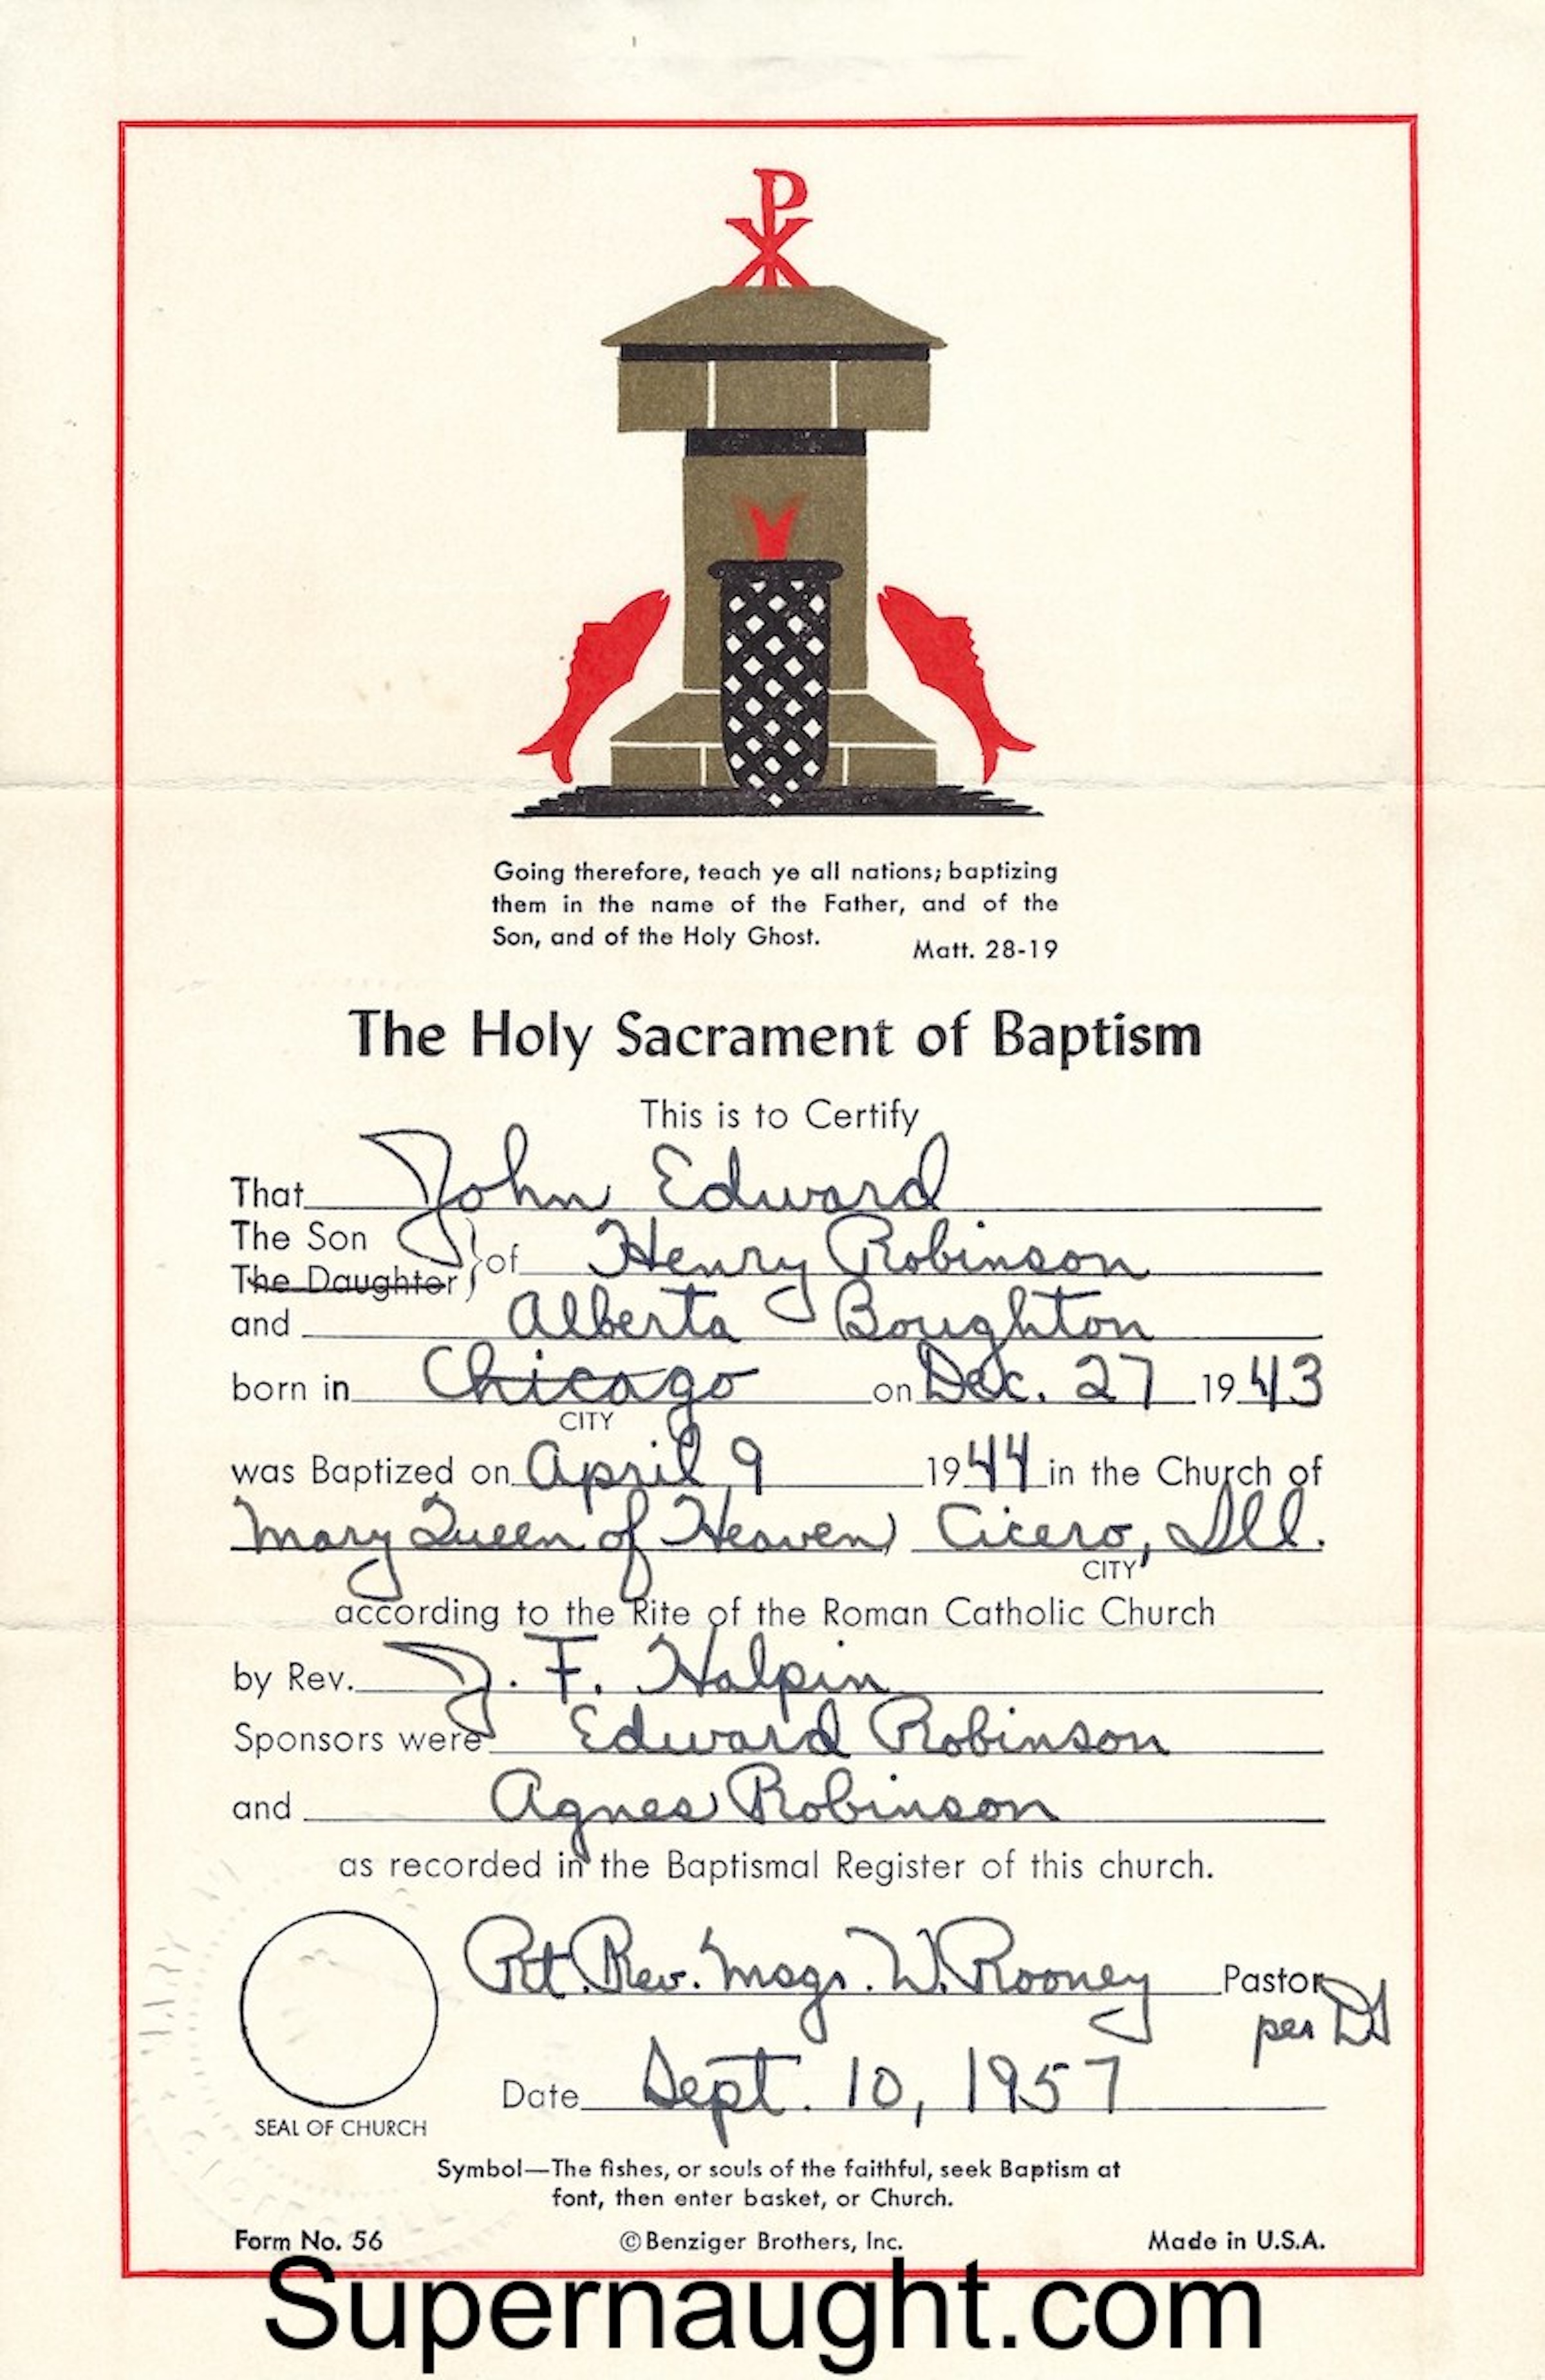 Going therefore, teach ye all nations; baptizing
them in the name of the Father, and of the
Son, and of the Holy Ghost.
Matt. 28-19
The Holy Sacrament of Baptism
This is to Certify
That John Edward
The Son
The Daughter } of Henry Robinson
and Alberta Boughton
born in Chicago on Dec. 27 1943
CITY
was Baptized on April 9 1944 in the Church of
Mary Queen of Heaven Cicero, Ill.
CITY
according to the Rite of the Roman Catholic Church
by Rev. J. F. Halpin
Sponsors were Edward Robinson
and Agnes Robinson
as recorded in the Baptismal Register of this church.
Rt. Rev. Msgr. W. Rooney Pastor
per
Date Sept. 10, 1957
SEAL OF CHURCH
Symbol—The fishes, or souls of the faithful, seek Baptism at
font, then enter basket, or Church.
Form No. 56 ©Benziger Brothers, Inc. Made in U.S.A.
Supernaught.com